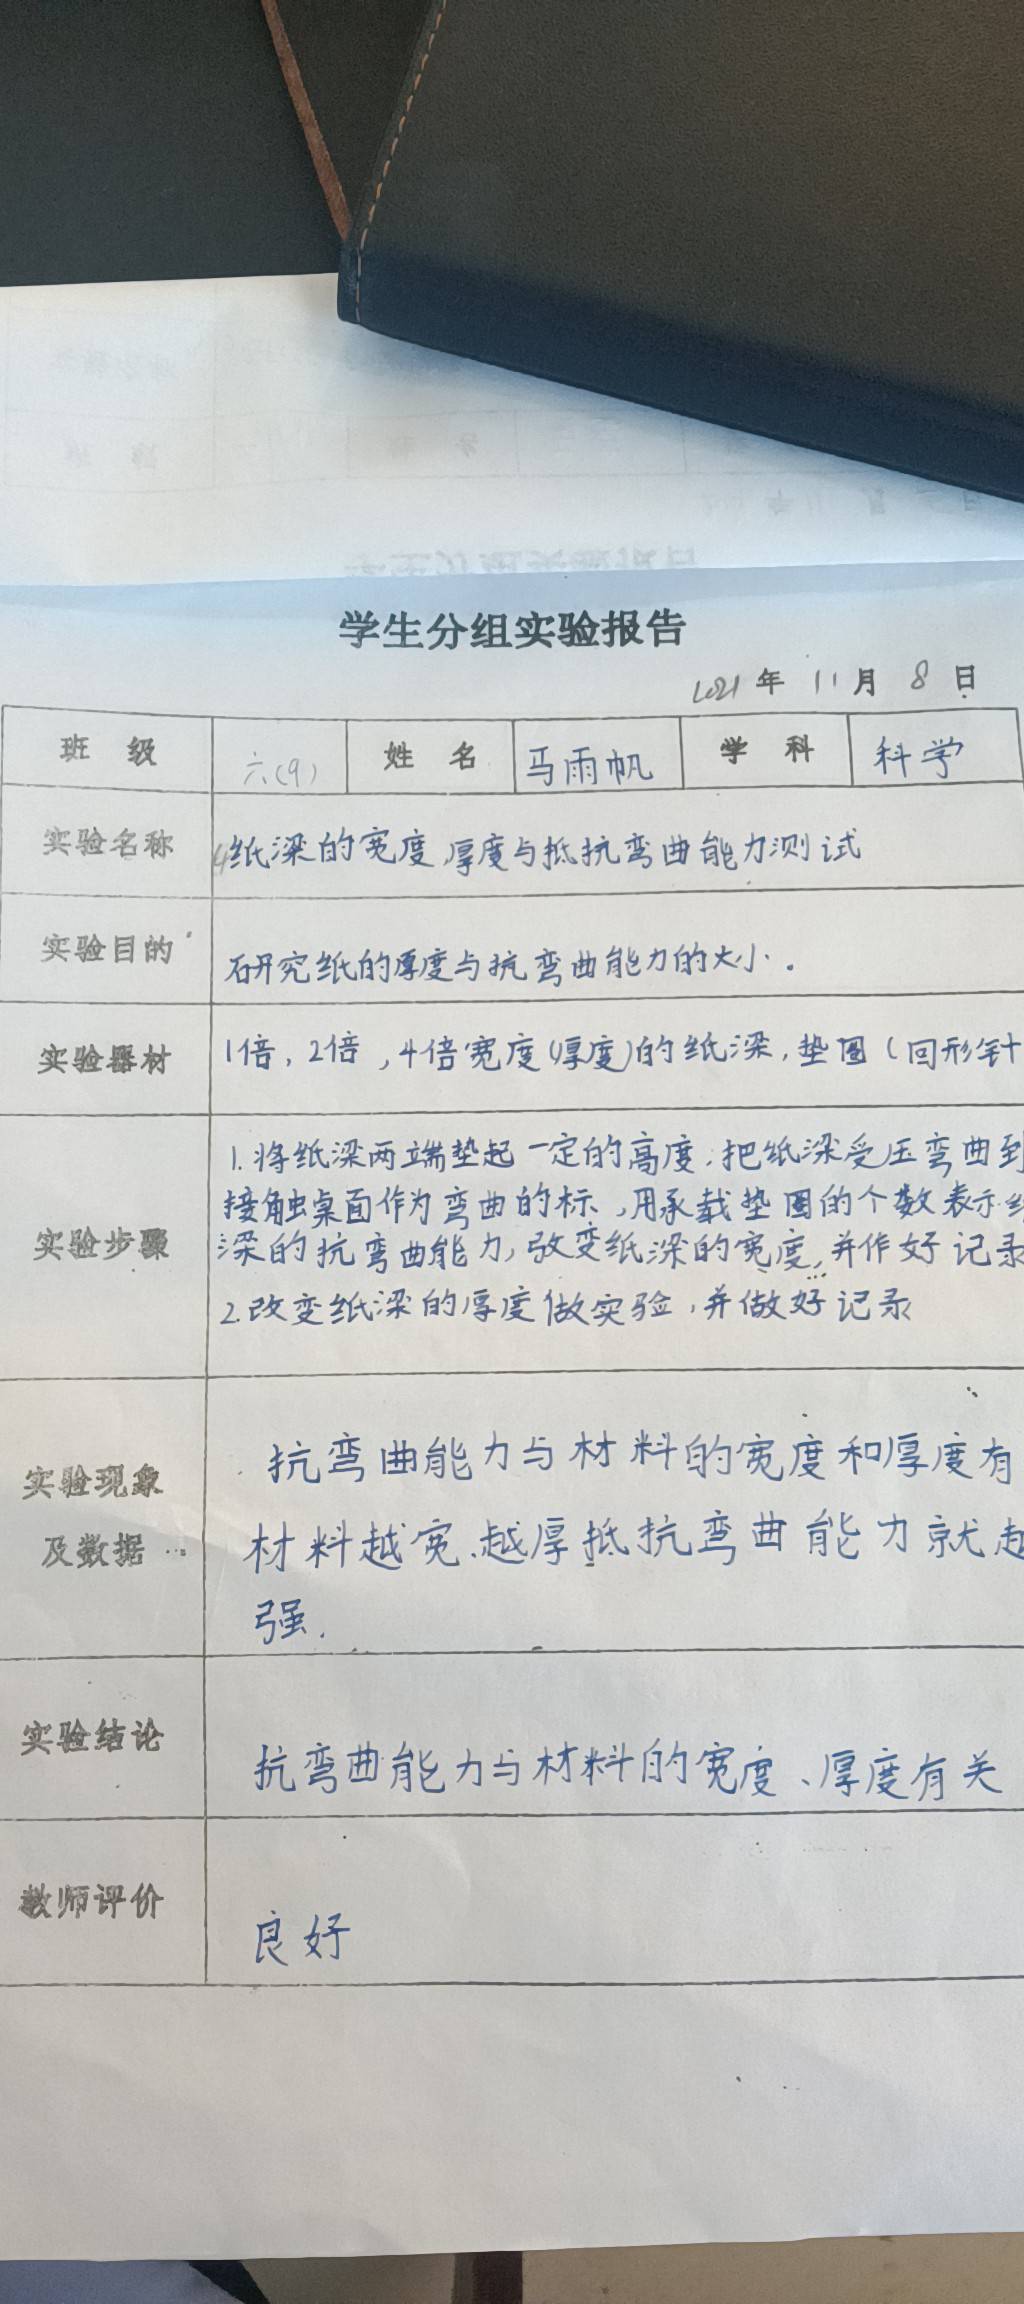 学生分组实验报告
2021年 11月 8日
班 级 六(9) 姓 名 马雨帆 学 科 科学
实验名称 纸梁的宽度,厚度与抵抗弯曲能力测试
实验目的 研究纸的厚度与抗弯曲能力的大小.
实验器材 1倍,2倍,4倍宽度(厚度)的纸梁,垫圈(回形针
实验步骤
1.将纸梁两端垫起一定的高度,把纸梁受压弯曲到
接触桌面作为弯曲的标,用承载垫圈的个数表示
梁的抗弯曲能力,改变纸梁的宽度,并作好记录
2.改变纸梁的厚度做实验,并做好记录
实验现象
及数据
抗弯曲能力与材料的宽度和厚度有
材料越宽、越厚抵抗弯曲能力就越
强.
实验结论 抗弯曲能力与材料的宽度、厚度有关
教师评价 良好